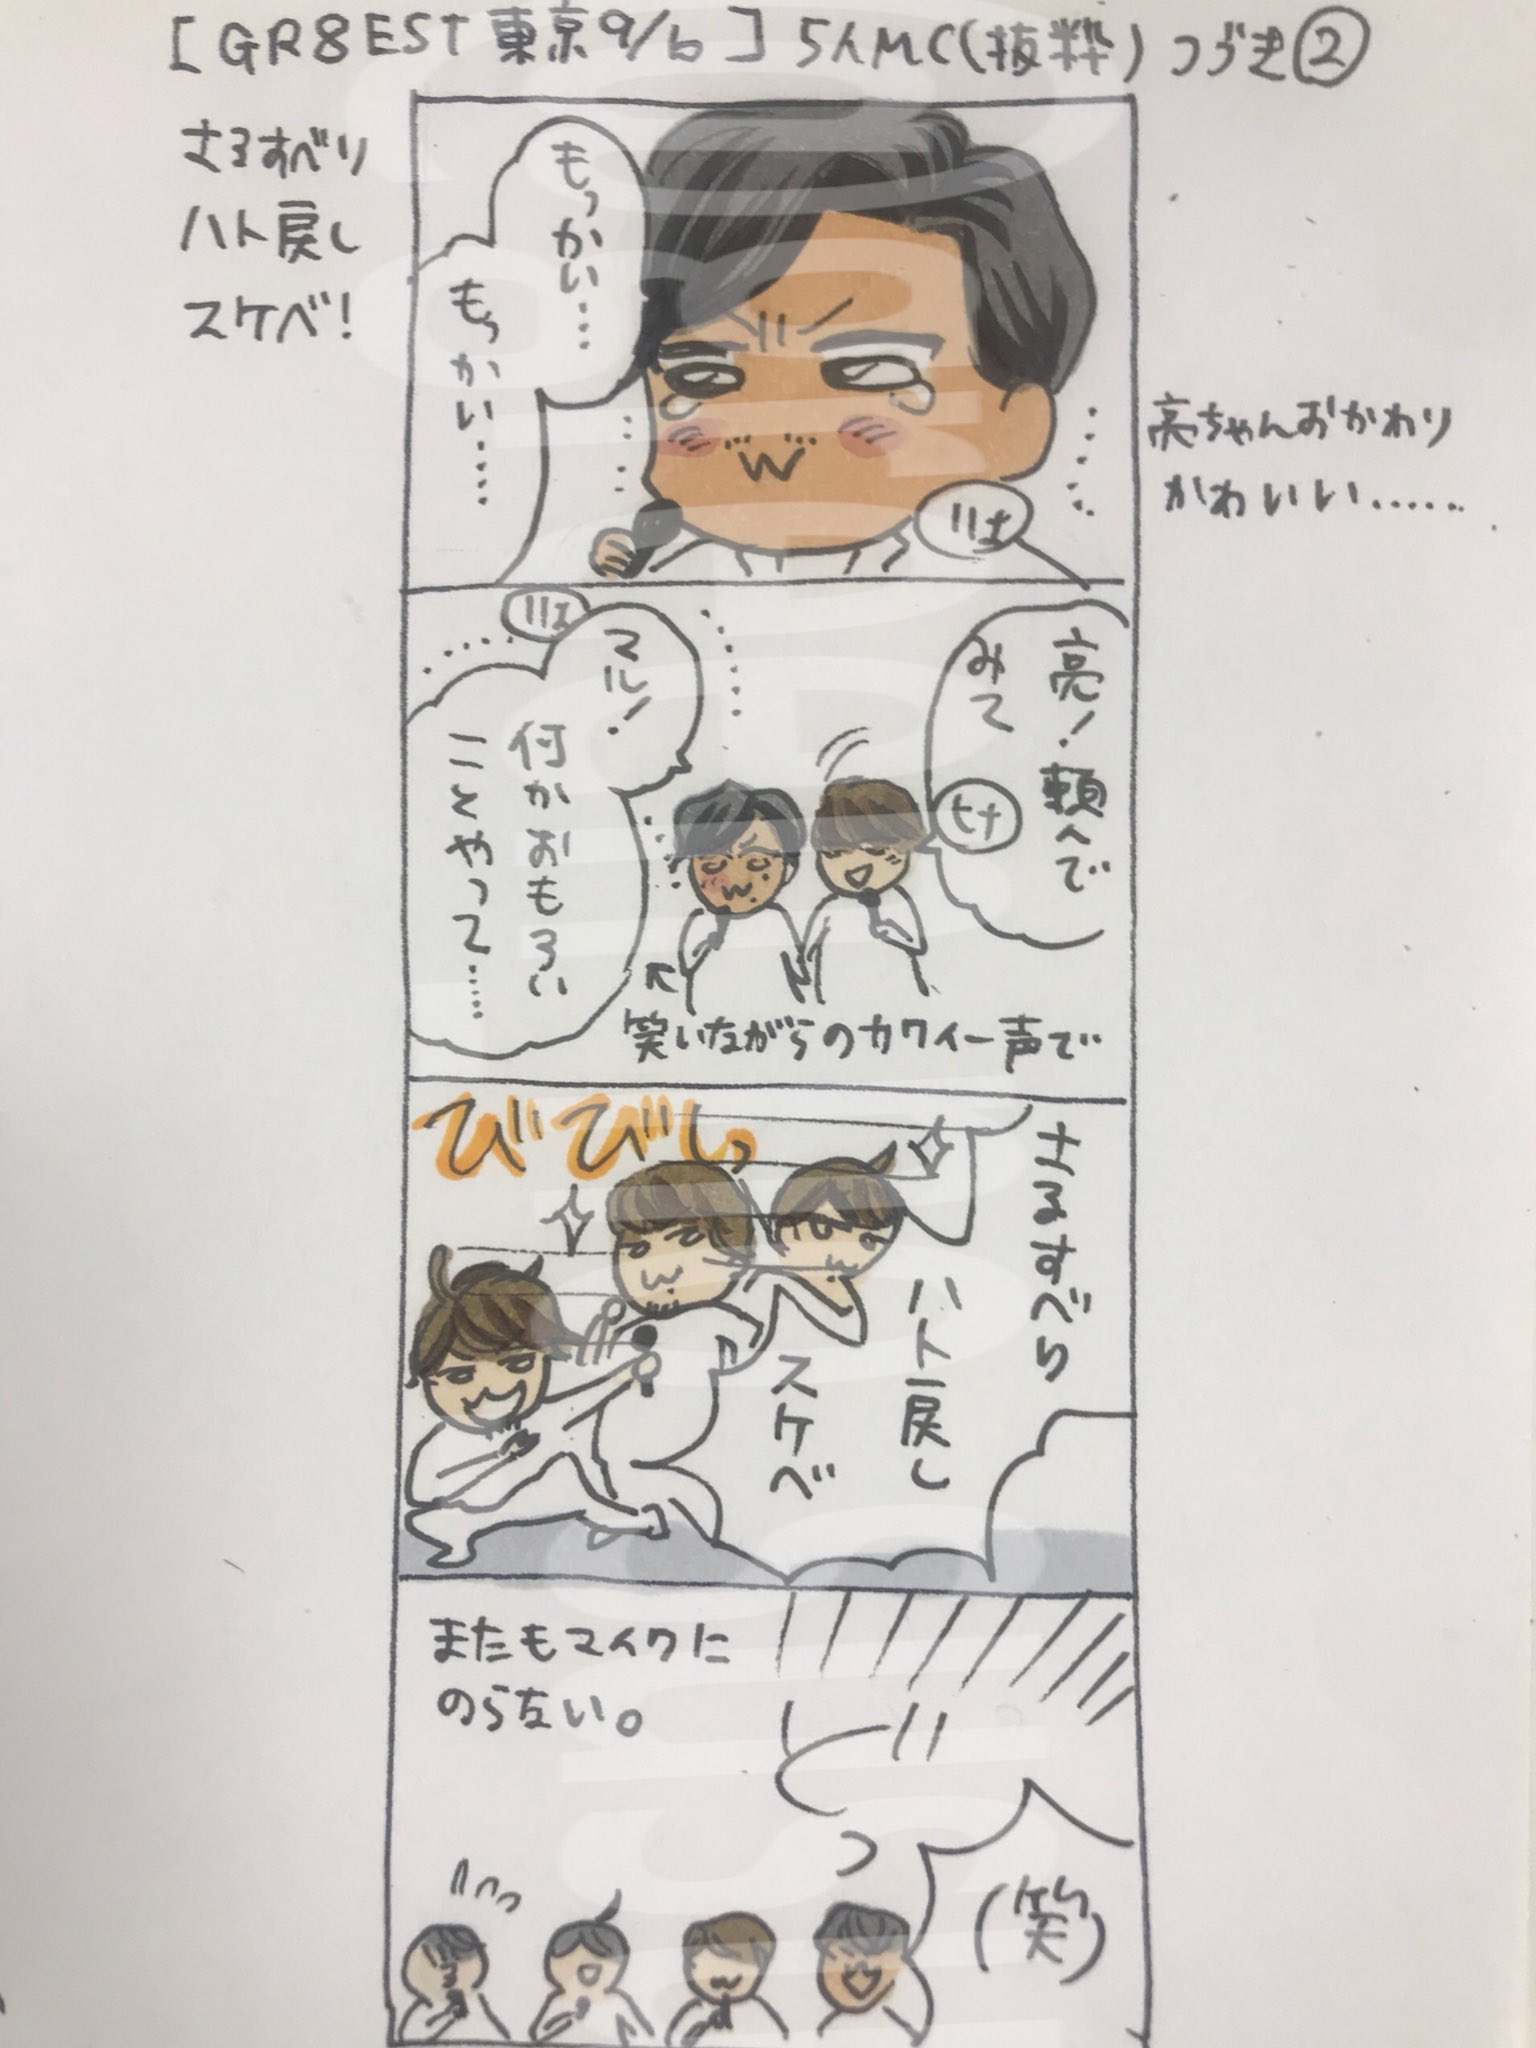 [GR8EST 東京9/6] 5人MC(抜粋)つづき②
さるすべり
ハト戻し
スケベ!
もっかい…
もっかい……
亮ちゃんおかわり
かわいい……
亮!頼んで
みて
ヒナ
マル!
何かおもろい
ことやって……
笑いながらのカワイー声で
さるすべり
ハト戻し
スケベ
びびしっ
またもマイクに
のらない。
どっ
(笑)